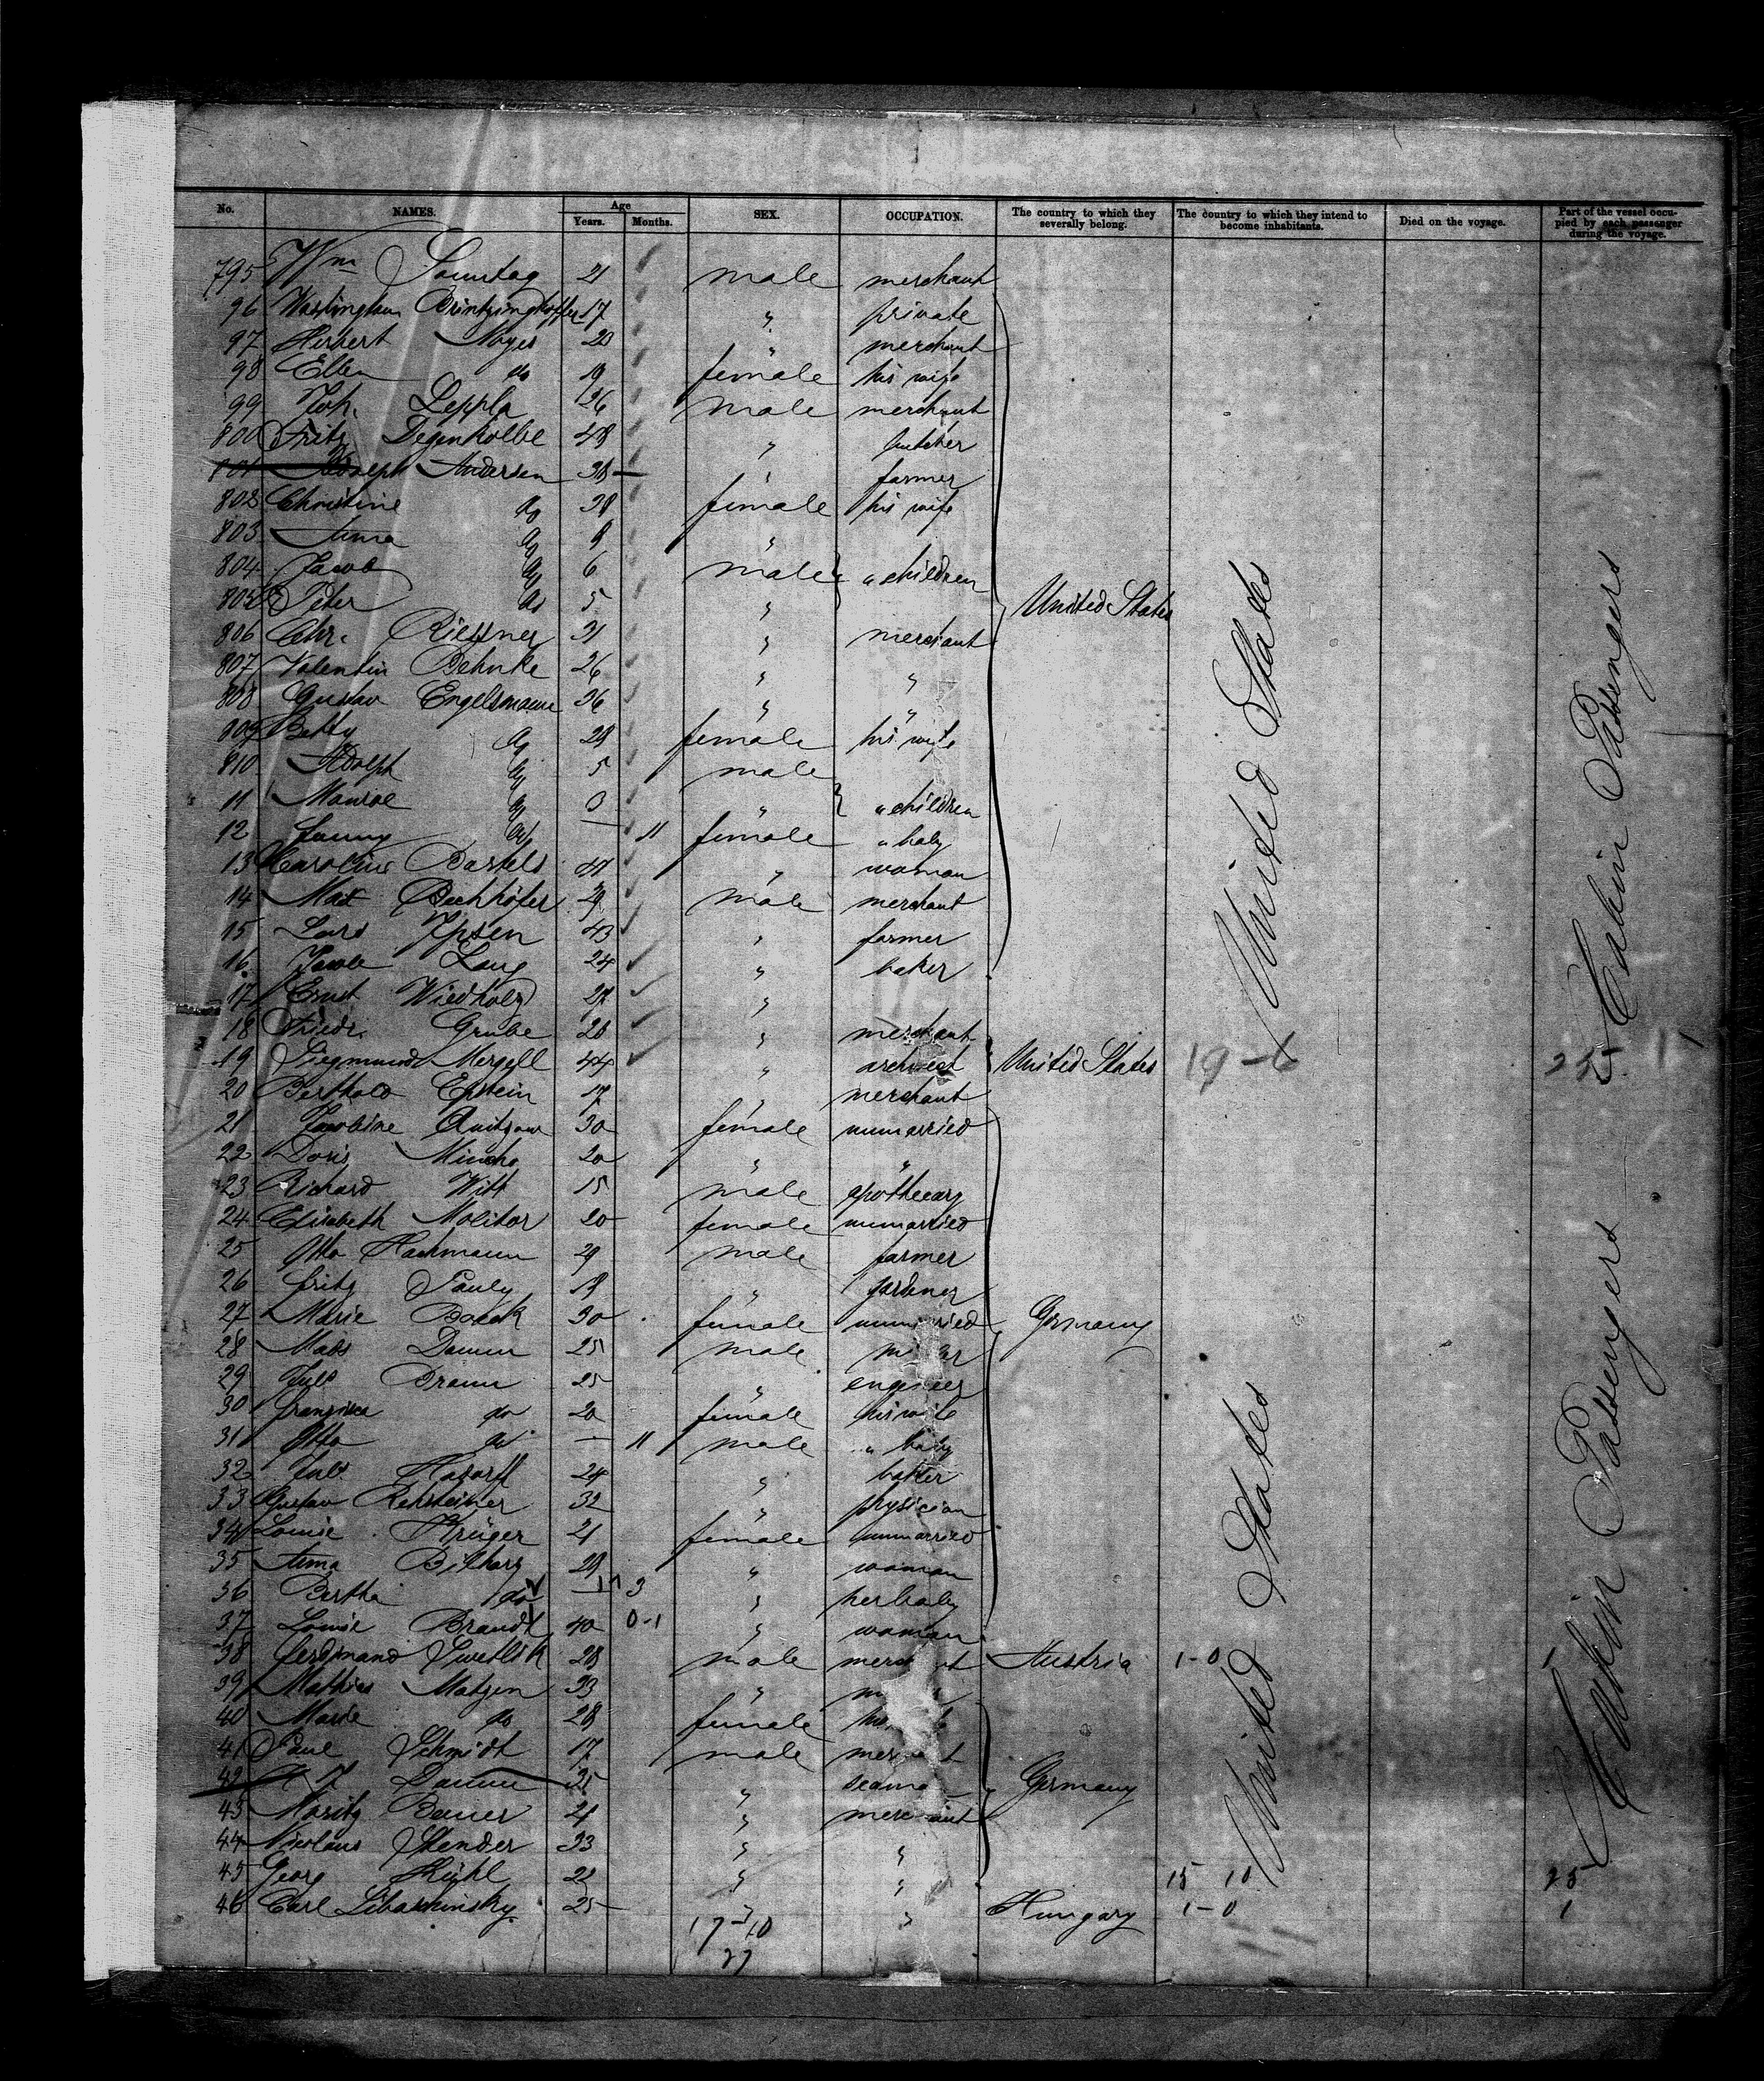 No. NAMES. Age Years. Months. SEX. OCCUPATION. The country to which they severally belong. The country to which they intend to become inhabitants. Died on the voyage. Part of the vessel occupied by each passenger during the voyage.
795 Wm Sonntag 21 male merchant
96 Washington Brintzinghoffer 17 " private
97 Herbert Noyes 20 " merchant
98 Ellen do 19 female his wife
99 Joh. Leppla 26 male merchant
800 Fritz Degenkolbe 48 " butcher
801 Adolph Andersen 38 " farmer
802 Christine do 38 female his wife
803 Anna do 9 "
804 Jacob do 6 male " children
805 Peter do 5 " United States
806 Chr. 31 " merchant
807 Valentin Behnke 26 " "
808 Gustav Engelsmann 36 " "
809 Betty do 29 female his wife
810 Adolph do 5 male
11 Monroe do 3 " " children
12 Fanny do — 11 female " baby
13 Caroline Bartels 41 " woman
14 Max Bechhöfer 29 male merchant
15 Lars Ipsen 43 " farmer
16 Lang 24 " baker
17 Ernst Wiedholz 27 "
18 Friedr. Grube 20 " merchant
19 Siegmund Mergell 44 " United States 19-6 25
20 Berthold Epstein 17 " merchant
21 Jacobine Quitzow 30 female unmarried
22 Doris 20 " "
23 Richard Witt 15 male apothecary
24 Elisabeth Molitor 20 female unmarried
25 Otto Hachmann 29 male farmer
26 Fritz Pauly 19 " gardener
27 Marie Boeck 30 female unmarried Germany
28 Mads Damm 25 male
29 Juls Braun 25 " engineer
30 Franziska do 20 female his wife
31 Otto do — 11 male " baby
32 Juls 24 " baker
33 Gustav Rehsteiner 32 " physician
34 Louise Krüger 21 female unmarried
35 Anna Bilharz 28 " woman
36 Bertha do — 3 " her baby
37 Louise Brandt 40 0-1 " woman
38 Ferdinand Swetlik 28 male merchant Austria 1-0 1
39 Mathias Matzen 33 "
40 Marie do 28 female
41 Paul Schmidt 17 male merchant
42 Damm 25 " Germany
43 Moritz Bauer 21 " merchant
44 Nicolaus Stender 33 " "
45 Georg Kühl 22 " " 15 10 25
46 Carl 25 " " Hungary 1-0 1
17-10
27
United States
Cabin Passengers
United States
Cabin Passengers